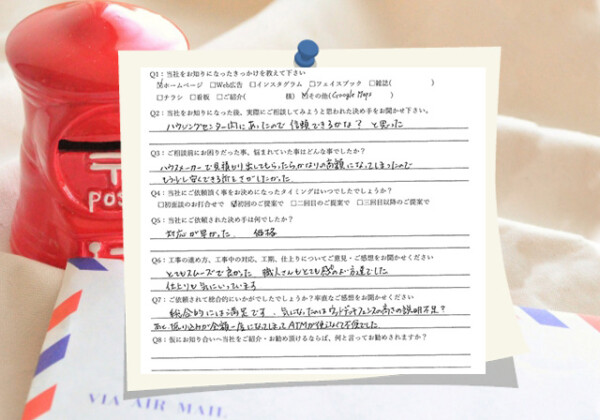 POS
Q1：当社をお知りになったきっかけを教えて下さい
☑ホームページ □Web広告 □インスタグラム □フェイスブック □雑誌( )
□チラシ □看板 □ご紹介( 様) ☑その他(Google Maps )
Q2：当社をお知りになった後、実際にご相談してみようと思われた決め手をお聞かせ下さい。
ハウジングセンター内にあったので信頼できるかな？と思った
Q3：ご相談前にお困りだった事、悩まれていた事はどんな事でしたか？
ハウスメーカーで見積り出してもらったらかなりの高額になってしまったので
もう少し安くできる所をさがしたかった
Q4：当社にご依頼頂く事をお決めになったタイミングはいつでしたでしょうか？
□初面談のお打合せで ☑初回のご提案で □二回目のご提案で □三回目以降のご提案で
Q5：当社にご依頼された決め手は何でしたか？
対応が早かった 価格
Q6：工事の進め方、工事中の対応、工期、仕上りについてご意見・ご感想をお聞かせください
とてもスムーズで良かった 職人さんもとても感じのよい方達でした
仕上りも気にいっています
Q7：ご依頼されて総合的にいかがでしたでしょうか？率直なご感想をお聞かせください
総合的にほぼ満足です。気になったのはウッドデッキフェンスの高さの説明不足？
あと、振り込みが全額一度になってしまってATMが使えなくて不便でした。
Q8：仮にお知り合いへ当社をご紹介・お勧め頂けるならば、何と言ってお勧めされますか？
VIA AIR MAIL